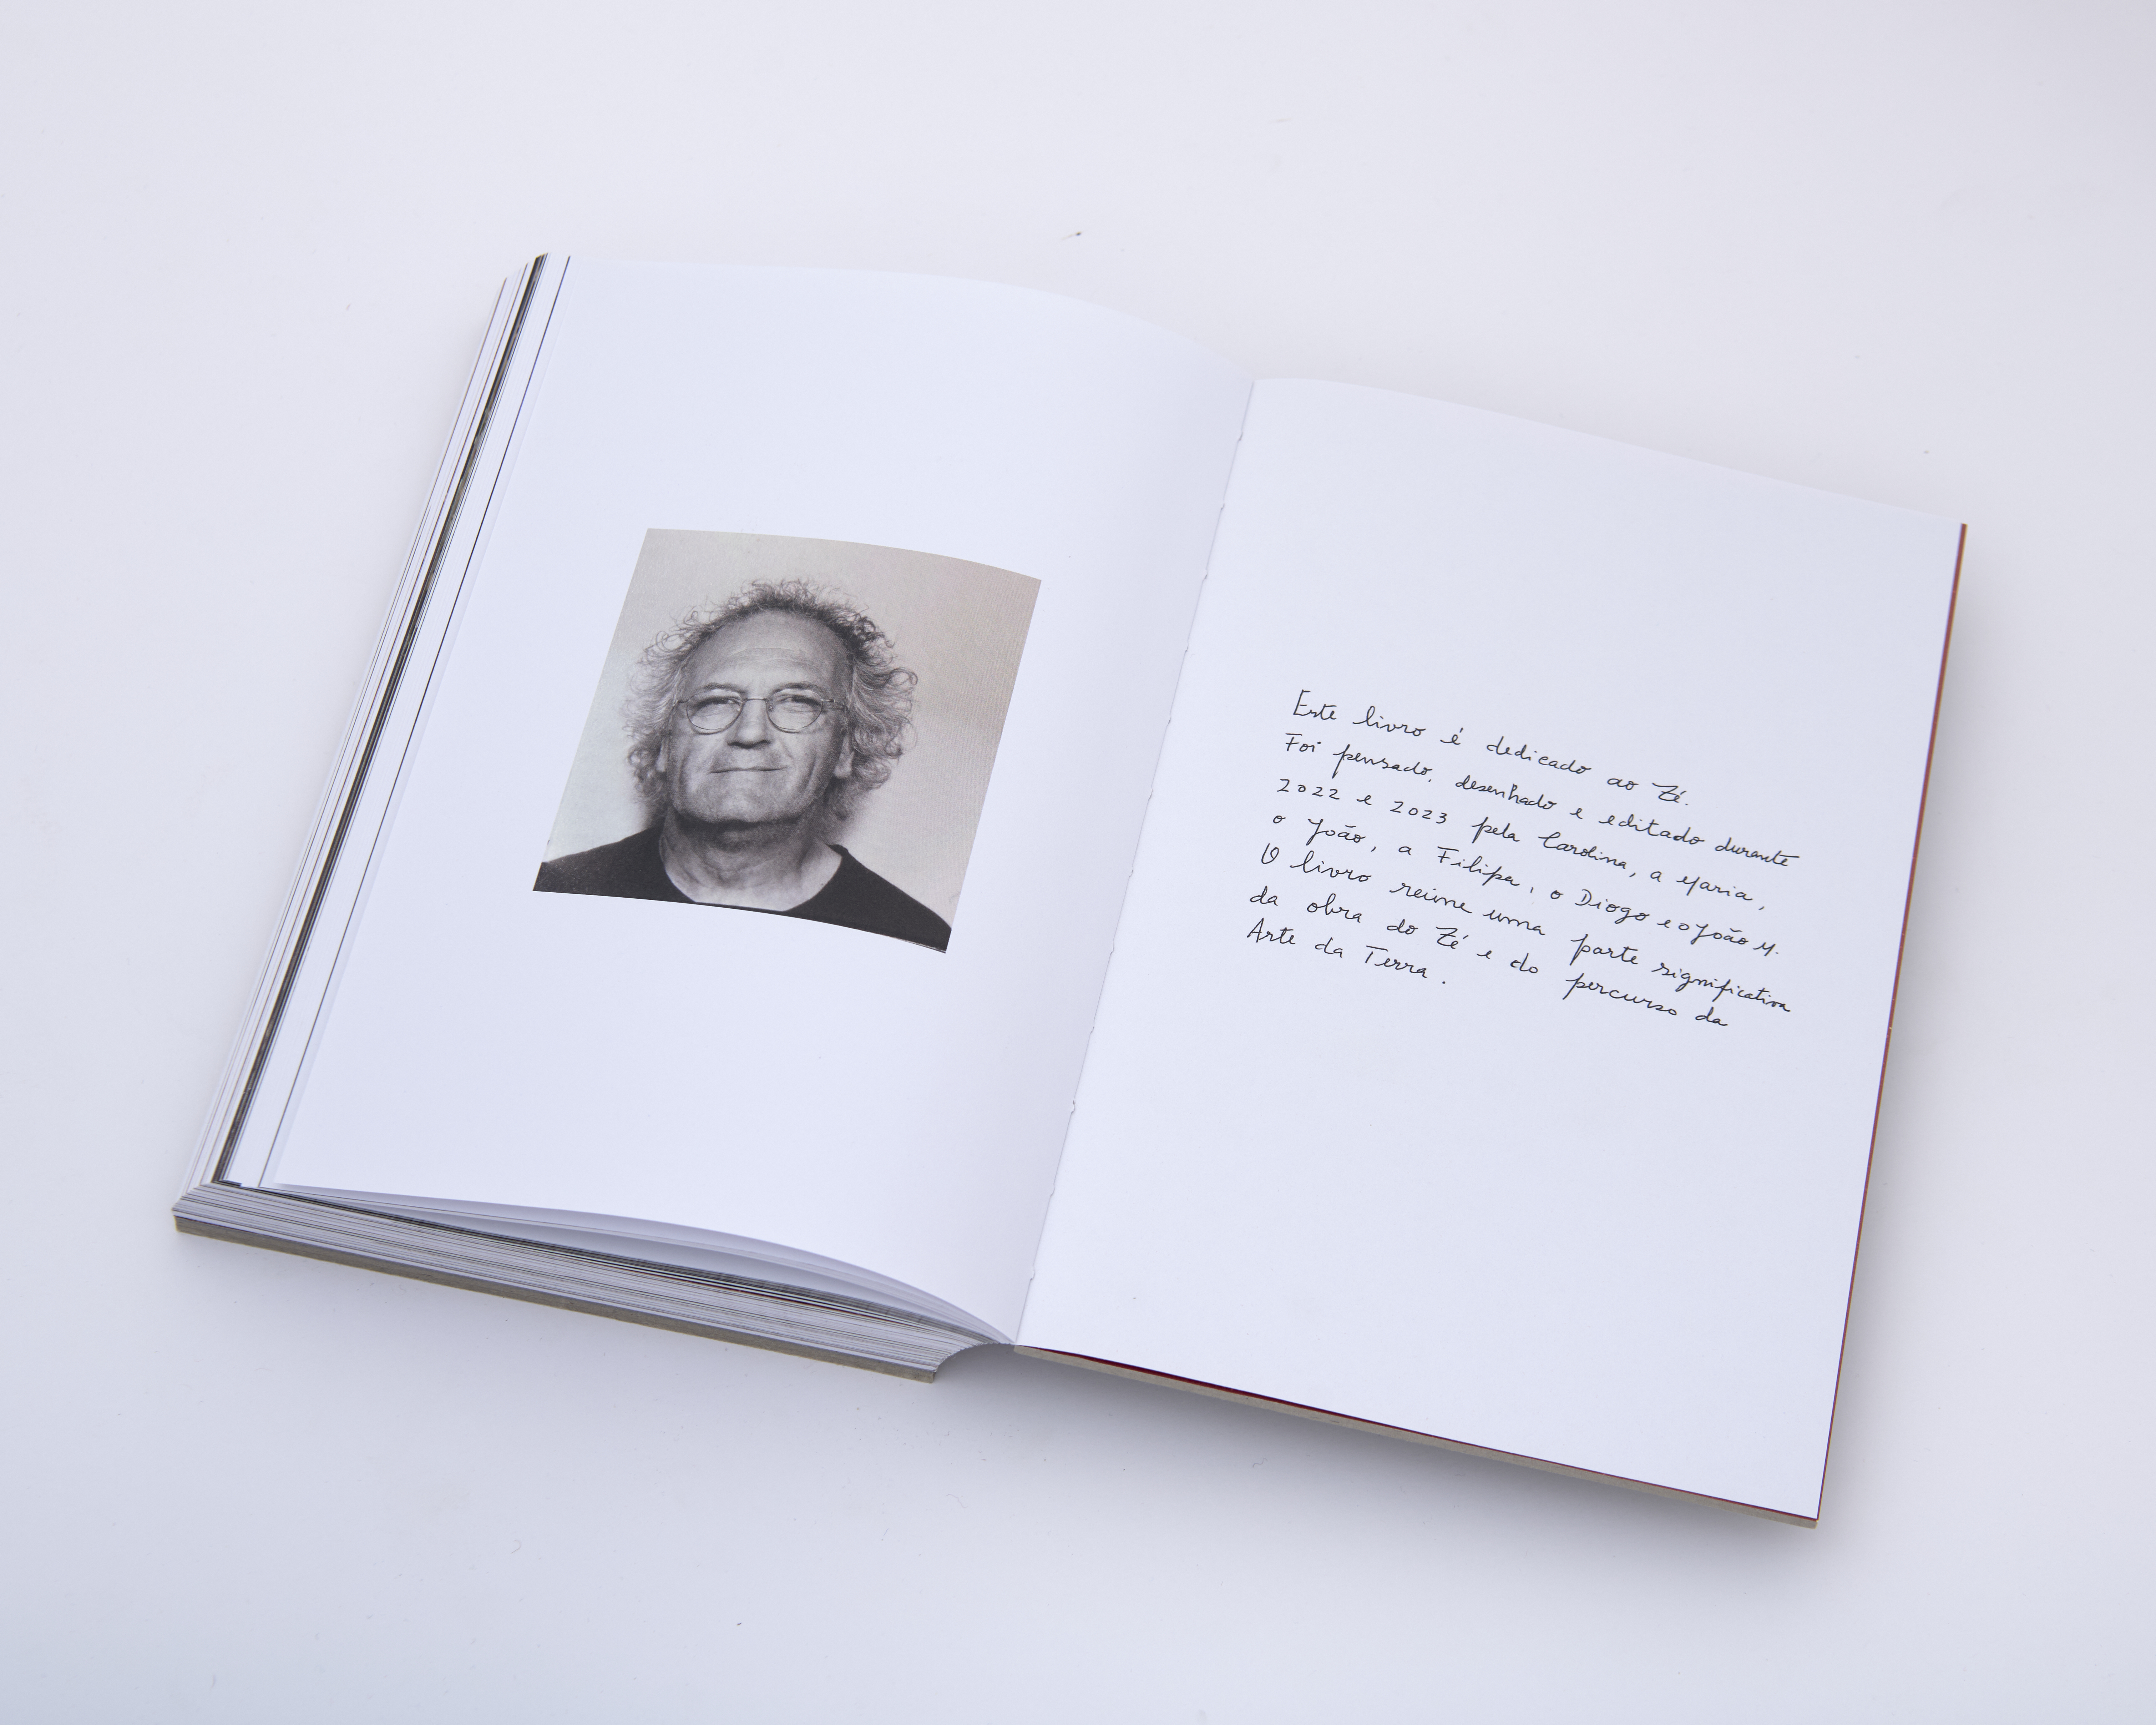 Este livro é dedicado ao Zé.
Foi pensado, desenhado e editado durante
2022 e 2023 pela Carolina, a Maria,
o João, a Filipa, o Diogo e o João M.
O livro reúne uma parte significativa
da obra do Zé e do percurso da
Arte da Terra.